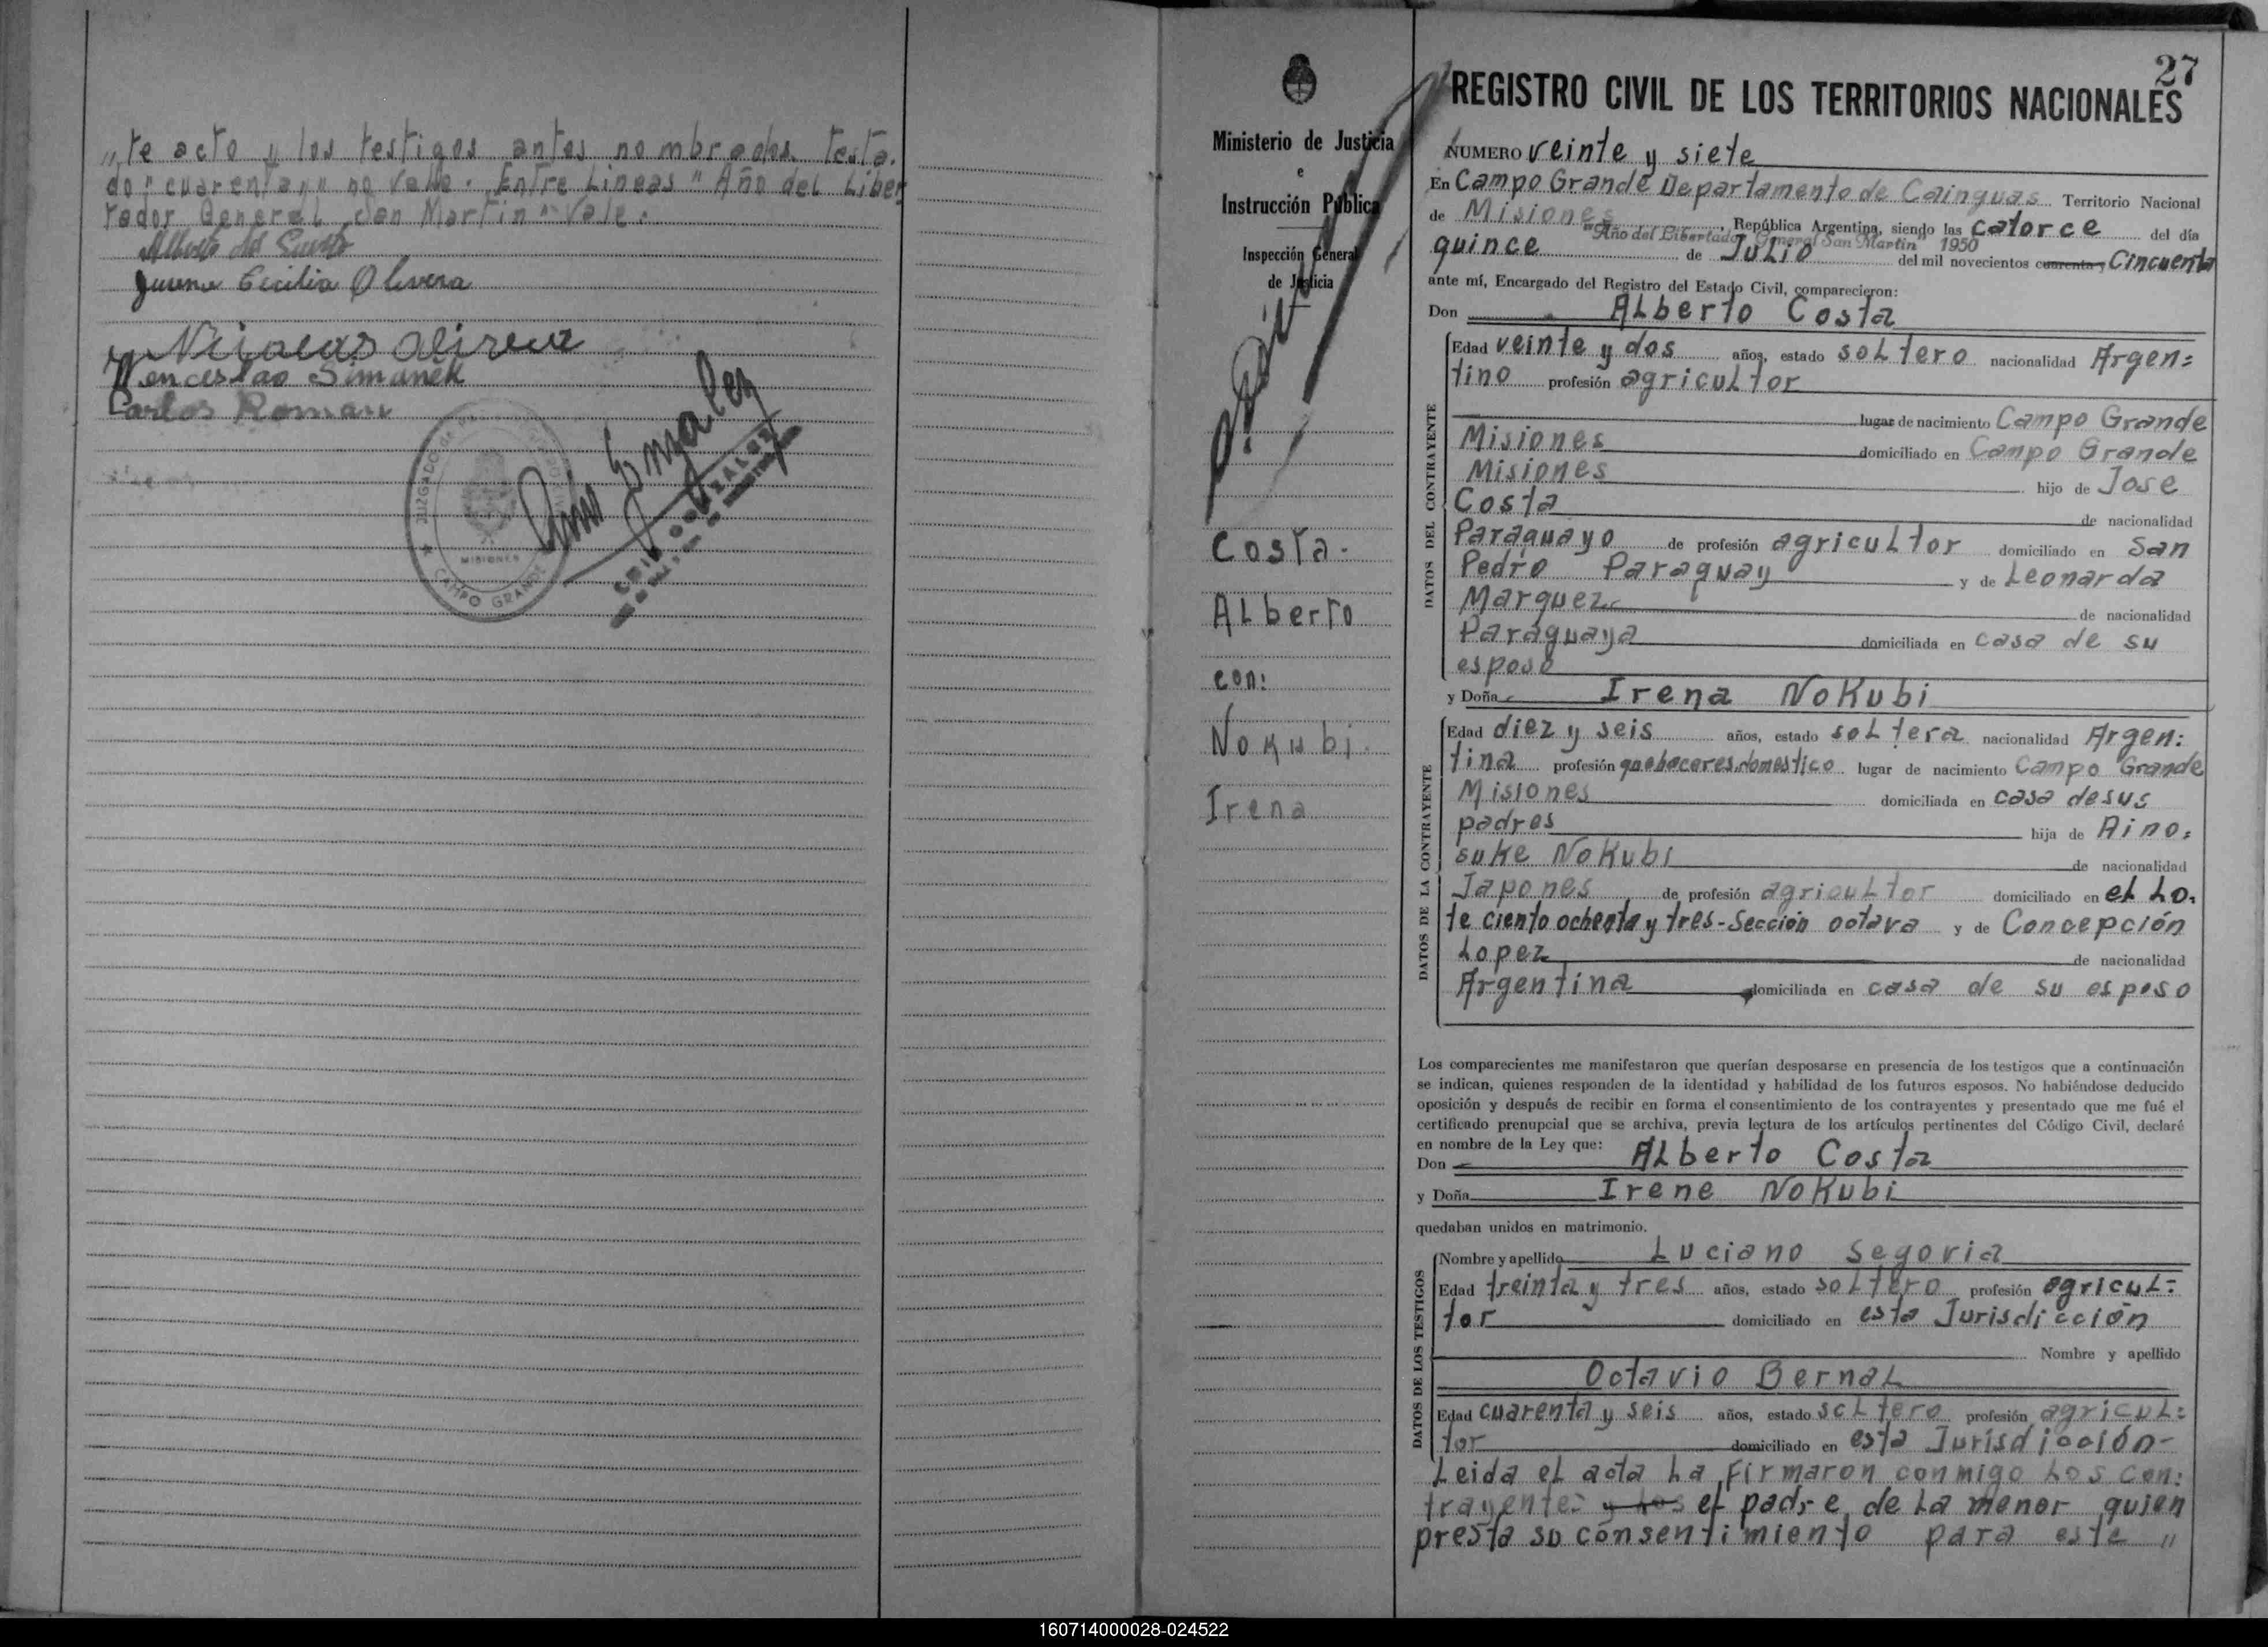 „te acto y los testigos antes nombrados. Testa.
do "cuarenta y" no vale. Entre Lineas "Año del Liber
tador General San Martin" Vale.
Cecilia Olivera
Wenceslao Simanek
Carlos Roman
JUZGADO DE PAZ
MISIONES
★ CAMPO GRANDE
Ministerio de Justicia
e
Instrucción Pública
Inspección General
de Justicia
Costa.
Alberto
con:
Nokubi.
Irena
27
REGISTRO CIVIL DE LOS TERRITORIOS NACIONALES
NUMERO veinte y siete
En Campo Grande Departamento de Cainguas Territorio Nacional
de Misiones, República Argentina, siendo las catorce del día
"Año del Libertador General San Martin" 1950
quince de Julio del mil novecientos cuarenta y Cincuenta
ante mí, Encargado del Registro del Estado Civil, comparecieron:
Don Alberto Costa
DATOS DEL CONTRAYENTE
Edad veinte y dos años, estado soltero nacionalidad Argen=
tino profesión agricultor
lugar de nacimiento Campo Grande
Misiones domiciliado en Campo Grande
Misiones hijo de Jose
Costa de nacionalidad
Paraguayo de profesión agricultor domiciliado en San
Pedro Paraguay y de Leonarda
Marquez de nacionalidad
Paraguaya domiciliada en casa de su
esposo
y Doña Irena Nokubi
DATOS DE LA CONTRAYENTE
Edad diez y seis años, estado soltera nacionalidad Argen:
tina profesión quehaceres domestico lugar de nacimiento Campo Grande
Misiones domiciliada en casa de sus
padres hija de Aino=
suke Nokubi de nacionalidad
Japones de profesión agricultor domiciliado en el Lo.
te ciento ochenta y tres-Sección octava y de Concepción
Lopez de nacionalidad
Argentina domiciliada en casa de su esposo
Los comparecientes me manifestaron que querían desposarse en presencia de los testigos que a continuación
se indican, quienes responden de la identidad y habilidad de los futuros esposos. No habiéndose deducido
oposición y después de recibir en forma el consentimiento de los contrayentes y presentado que me fué el
certificado prenupcial que se archiva, previa lectura de los artículos pertinentes del Código Civil, declaré
en nombre de la Ley que:
Don Alberto Costa
y Doña Irene Nokubi
quedaban unidos en matrimonio.
DATOS DE LOS TESTIGOS
Nombre y apellido Luciano Segovia
Edad treinta y tres años, estado soltero profesión agricul=
tor domiciliado en esta Jurisdicción
Nombre y apellido
Octavio Bernal
Edad cuarenta y seis años, estado soltero profesión agricul=
tor domiciliado en esta Jurisdicción-
Leida el acta la firmaron conmigo los con:
trayentes y los el padre de la menor quien
presta su consentimiento para este "
160714000028-024522